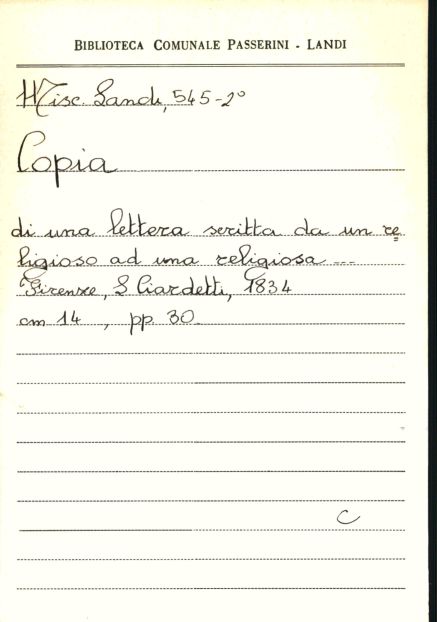 BIBLIOTECA COMUNALE PASSERINI - LANDI
Misc. Landi, 545-2°
Copia
di una lettera scritta da un re=
ligioso ad una religiosa ...
Firenze, L Ciardetti, 1834
cm 14 , pp 30.
C